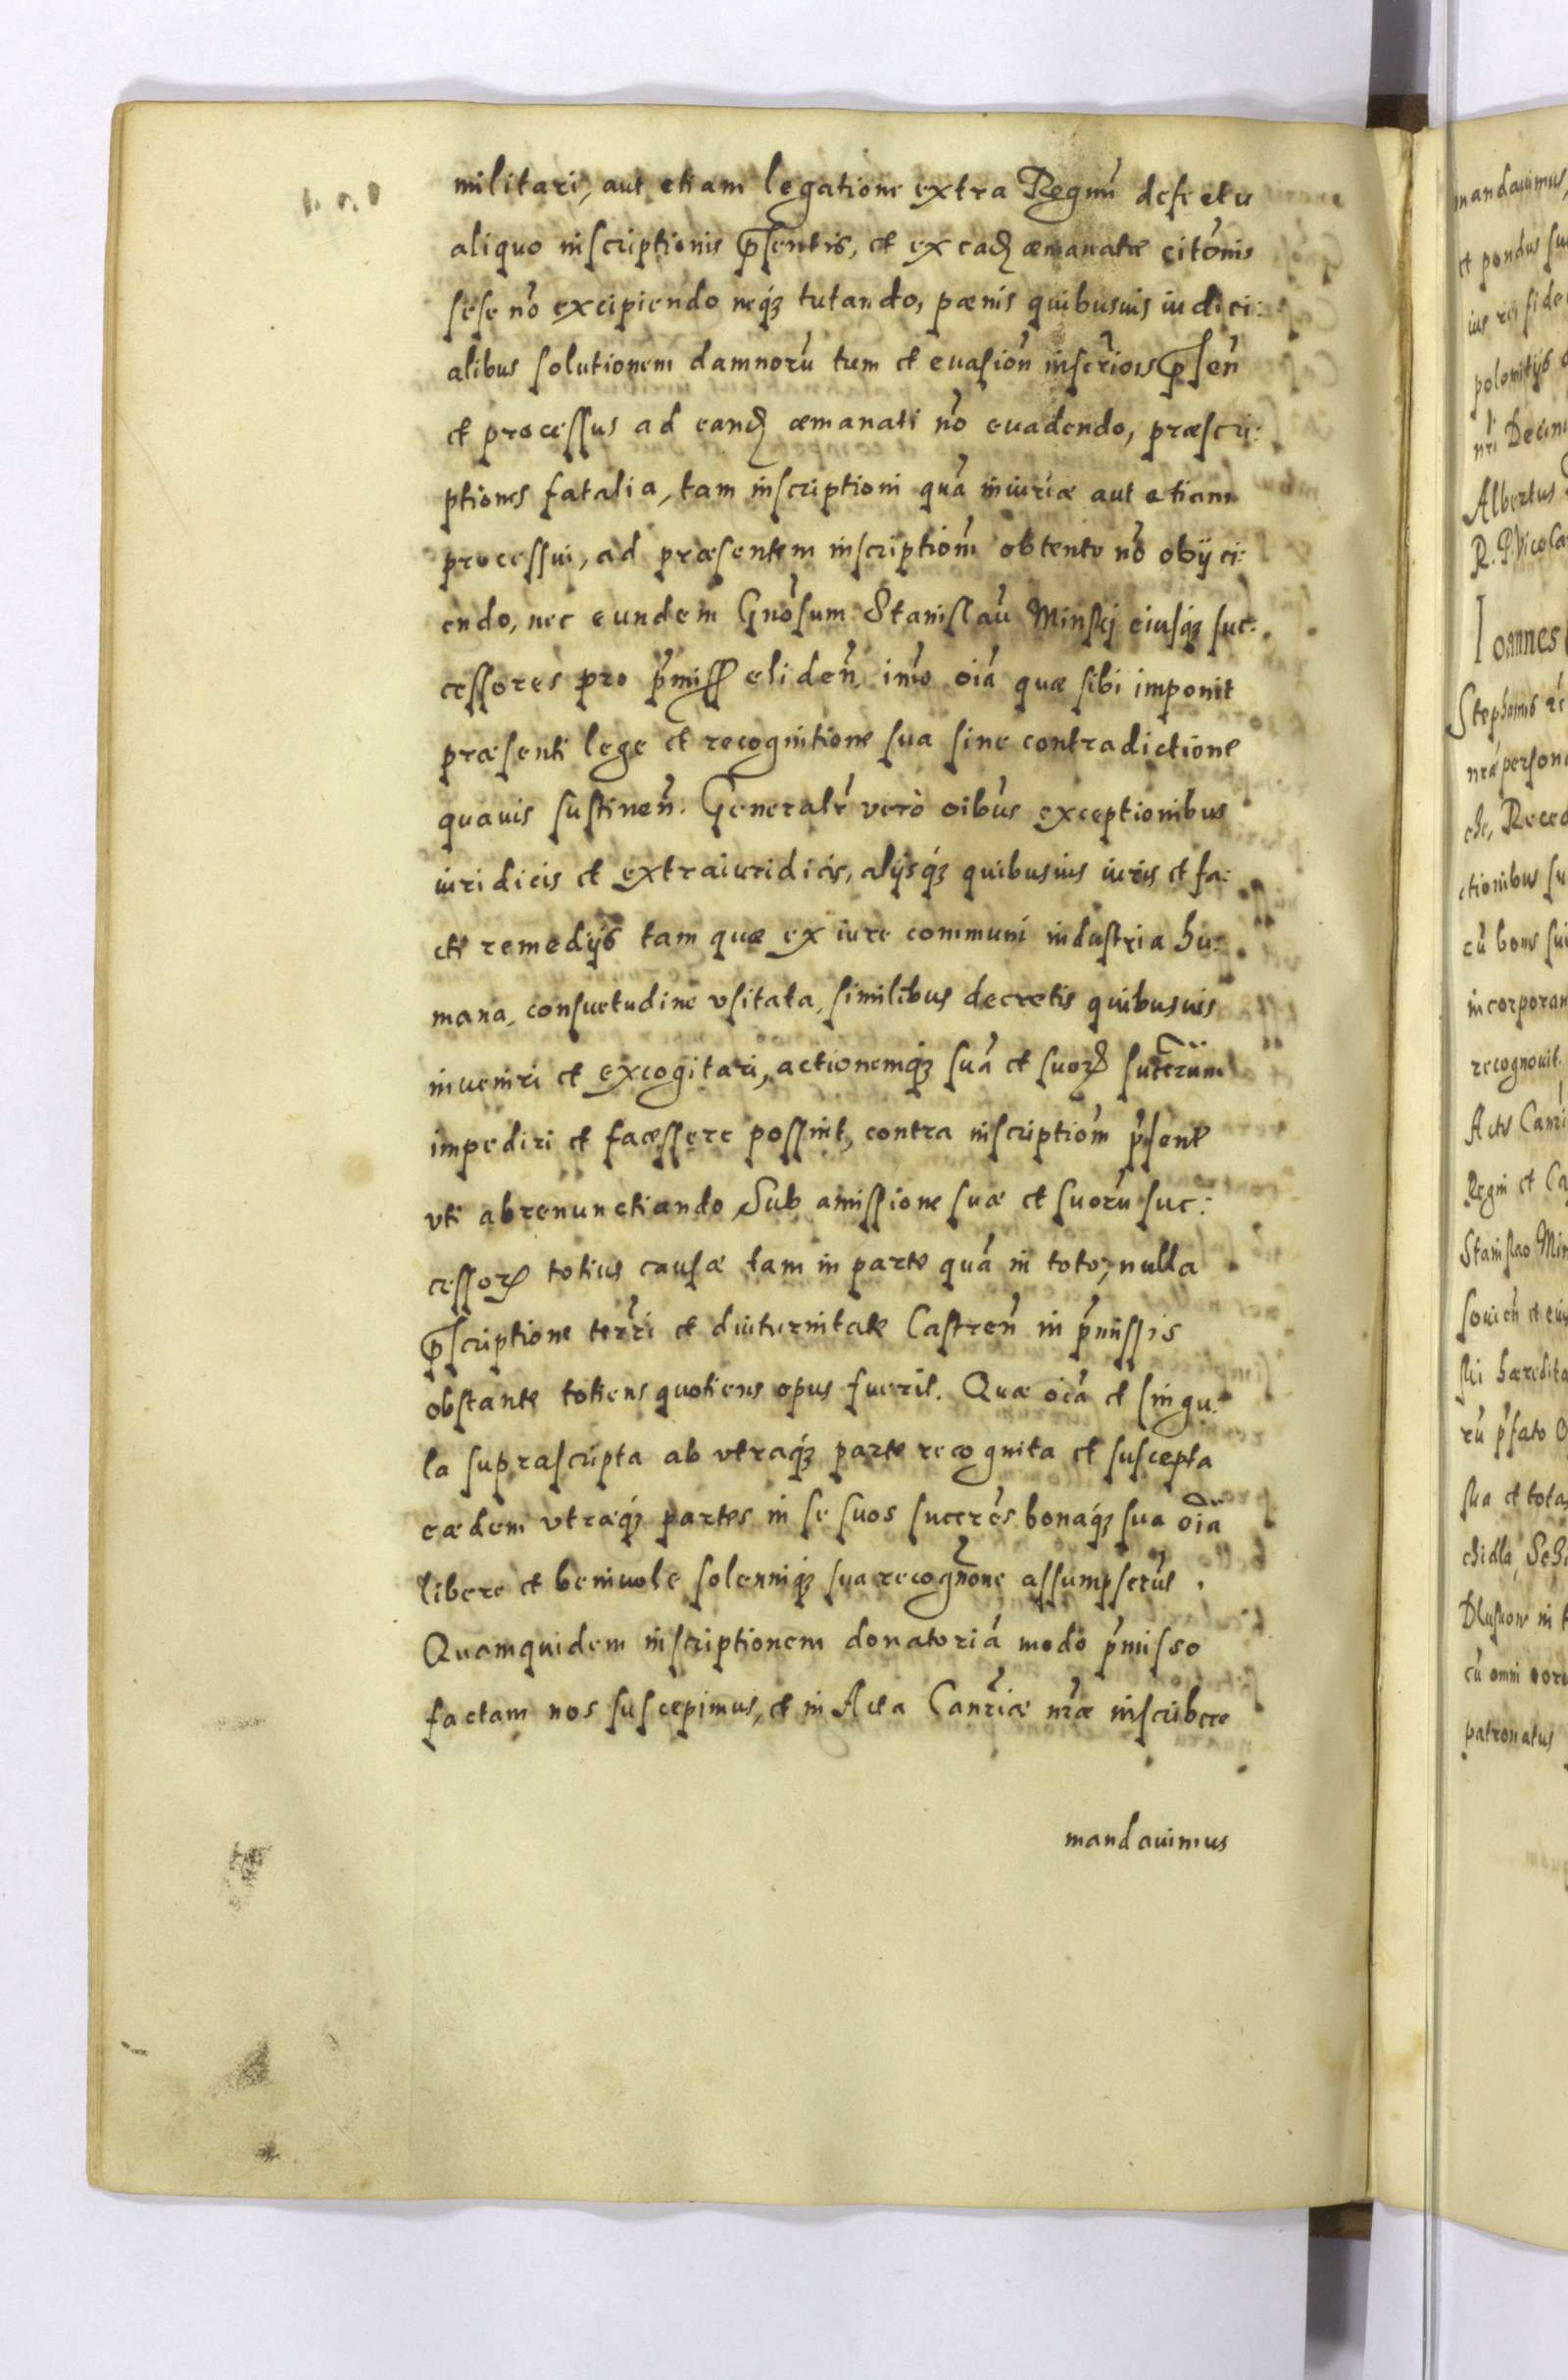 militari, aut etiam legatione extra Regnū defectu
aliquo inscriptionis p̄sentis, et ex eadꝫ æmanatæ citōnis
sese nō excipiendo neqꝫ tutando, pænis quibusuis iudici:
alibus solutionem damnorū tum et euasiōn inscrīōis p̄sen̄
et processus ad eandꝫ æmanati nō euadendo, præscri:
ptiones fatalia, tam inscriptioni quā iniuriæ aut etiam
processui, ad præsentem inscriptiōm obtento nō obijci:
endo, nec eundem Gnōsum Stanislaū Minskj eiusqꝫ suc:
cessores pro p̄miss eliden̄ imō oīa quæ sibi imponit
præsenti lege et recognitione sua sine contradictione
quauis sustinen̄. Generalr̄ verò oībus exceptionibus
iuridicis et extraiuridicis, alijsqꝫ quibusuis iuris et fa:
cti remedijs tam quæ ex iure communi industria hu:
mana, consuetudine vsitata, similibus decretis quibusuis
inueniri et excogitari, actionemqꝫ suā et suorꝝ succr̄um
impediri et facessere possint, contra inscriptiōm p̄sent
vti abrenunctiando Sub amissione suæ et suorū suc:
cessorꝝ totius causæ tam in parte quā in toto, nulla
p̄scriptione terr̄i et diuturnitate Castren̄ in p̄missis
obstante totiens quotiens opus fuerit. Quæ oīa et singu:
la suprascripta ab vtraqꝫ parte recognita et suscepta
eædem vtræqꝫ partes in se suos succr̄es bonaqꝫ sua oīa
libere et beniuole solenniqꝫ sua recogn̄one assumpserūt.
Quamquidem inscriptionem donatoriā modo p̄misso
factam nos suscepimus, et in Acta Canr̄iæ nr̄æ inscribere
mandauimus
mandauimus,
et pondus su
ius rei fide
nr̄i Decim
Albertus
R. P. Nicola
Ioannes
Stephanus
nr̄a persona
Reced
ctionibus su
cū bonis sui
incorporan
recognouit.
Acta Canr̄i
Regni et Ca
Stanislao Min
ski hæredita
rū p̄fato
sua et tota
cū omni
patronatus